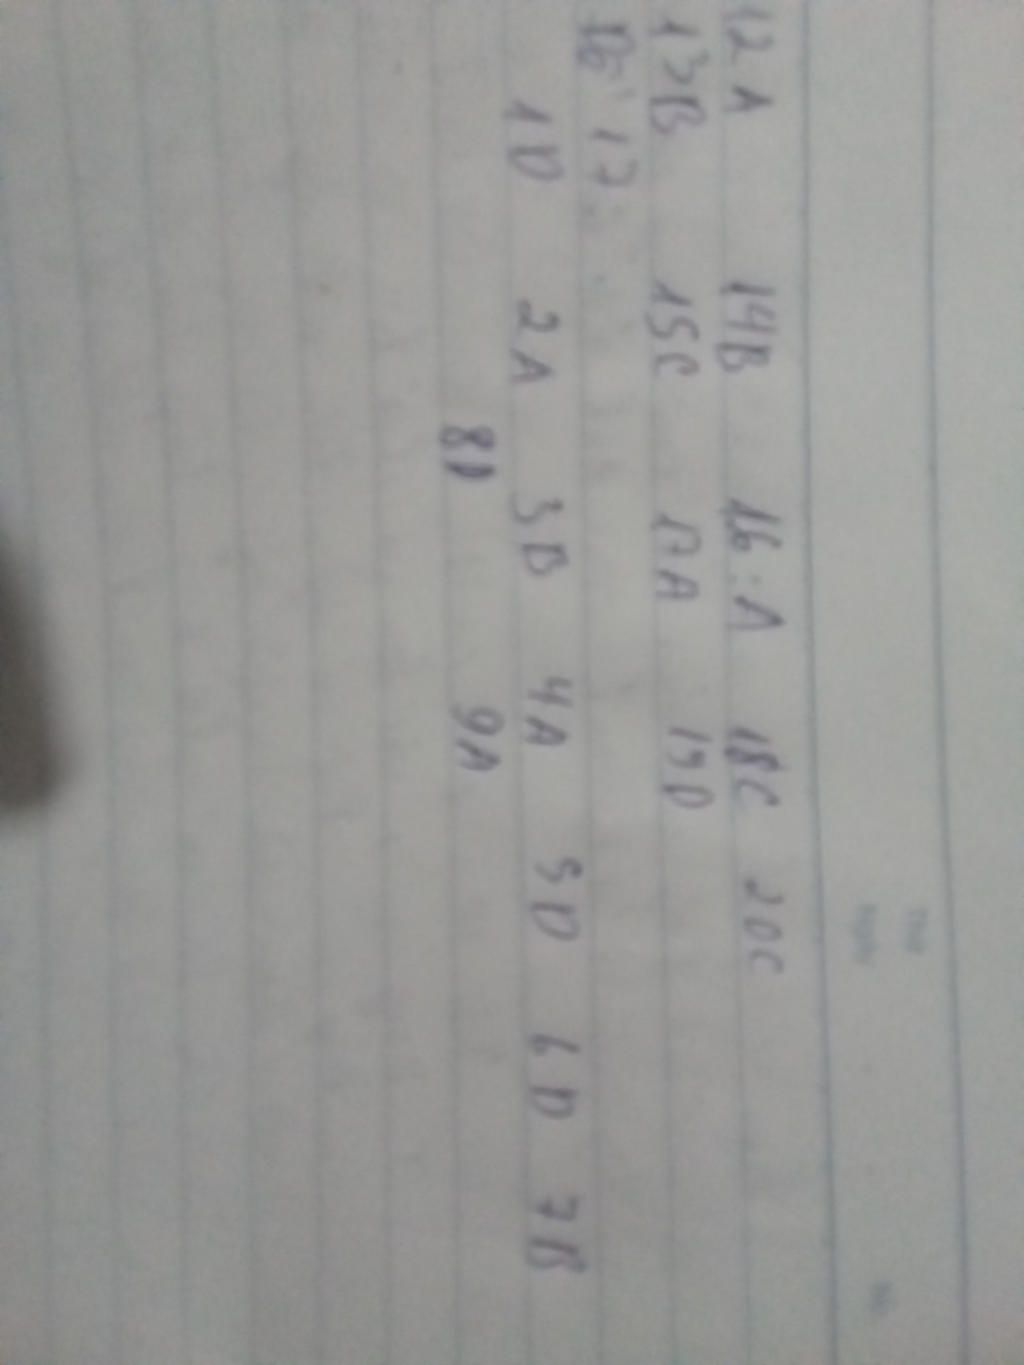 12A 14B 16:A 18C 20C
13B 15C 17A 19D
Đề 17:
1D 2A 3B 4A 5D 6D 7B
8D 9A